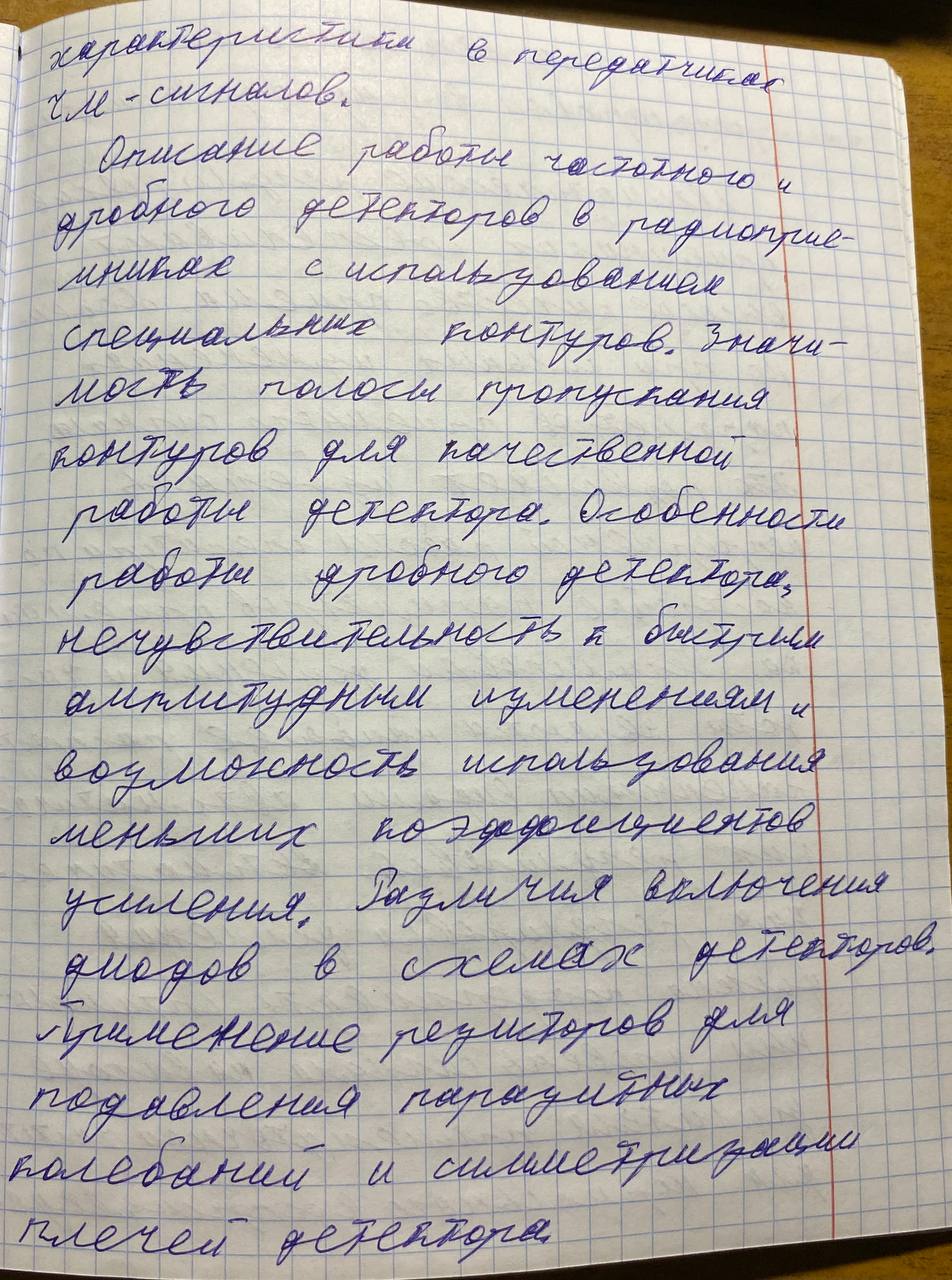 характеристики в передатчиках
ЧМ-сигналов.
Описание работы частотного и
дробного детекторов в радиоприе-
мниках с использованием
специальных контуров. Значи-
мость полосы пропускания
контуров для качественной
работы детектора. Особенности
работы дробного детектора,
нечувствительность к быстрым
амплитудным изменениям и
возможность использования
меньших коэффициентов
усиления. Различия включения
диодов в схемах детекторов.
Применение резисторов для
подавления паразитных
колебаний и симметризации
плечей детектора.